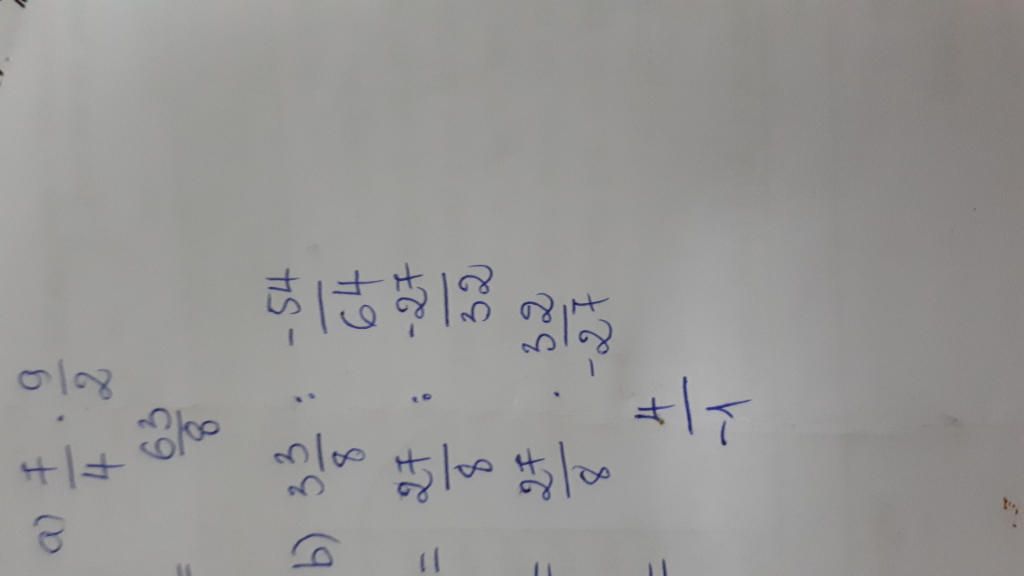 a) 7/4 . 9/2
= 63/8
b) 3 3/8 : -54/64
= 27/8 : -27/32
= 27/8 . 32/-27
= 4/-1